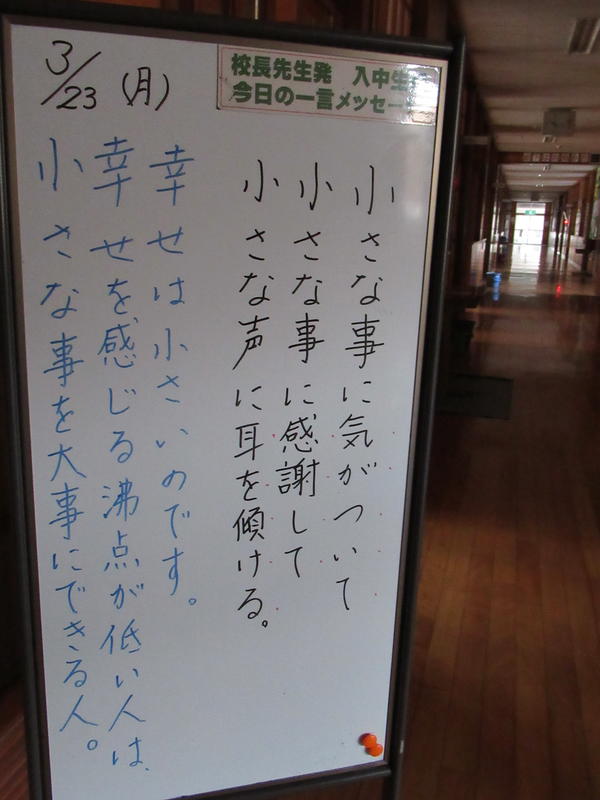 3/23 (月)
校長先生発 入中生
今日の一言メッセー
小さな事に気がついて
小さな事に感謝して
小さな声に耳を傾ける。
幸せは小さいのです。
幸せを感じる沸点が低い人は、
小さな事を大事にできる人。